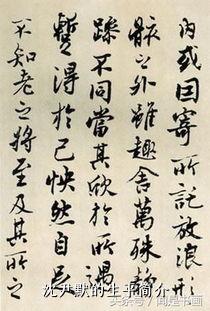 内或因寄所託放浪形
骸之外雖趣舍萬殊靜
躁不同當其欣於所遇
暫得於己怏然自足
不知老之將至及其所之
沈尹默的生平简介
头条号/闻是书画